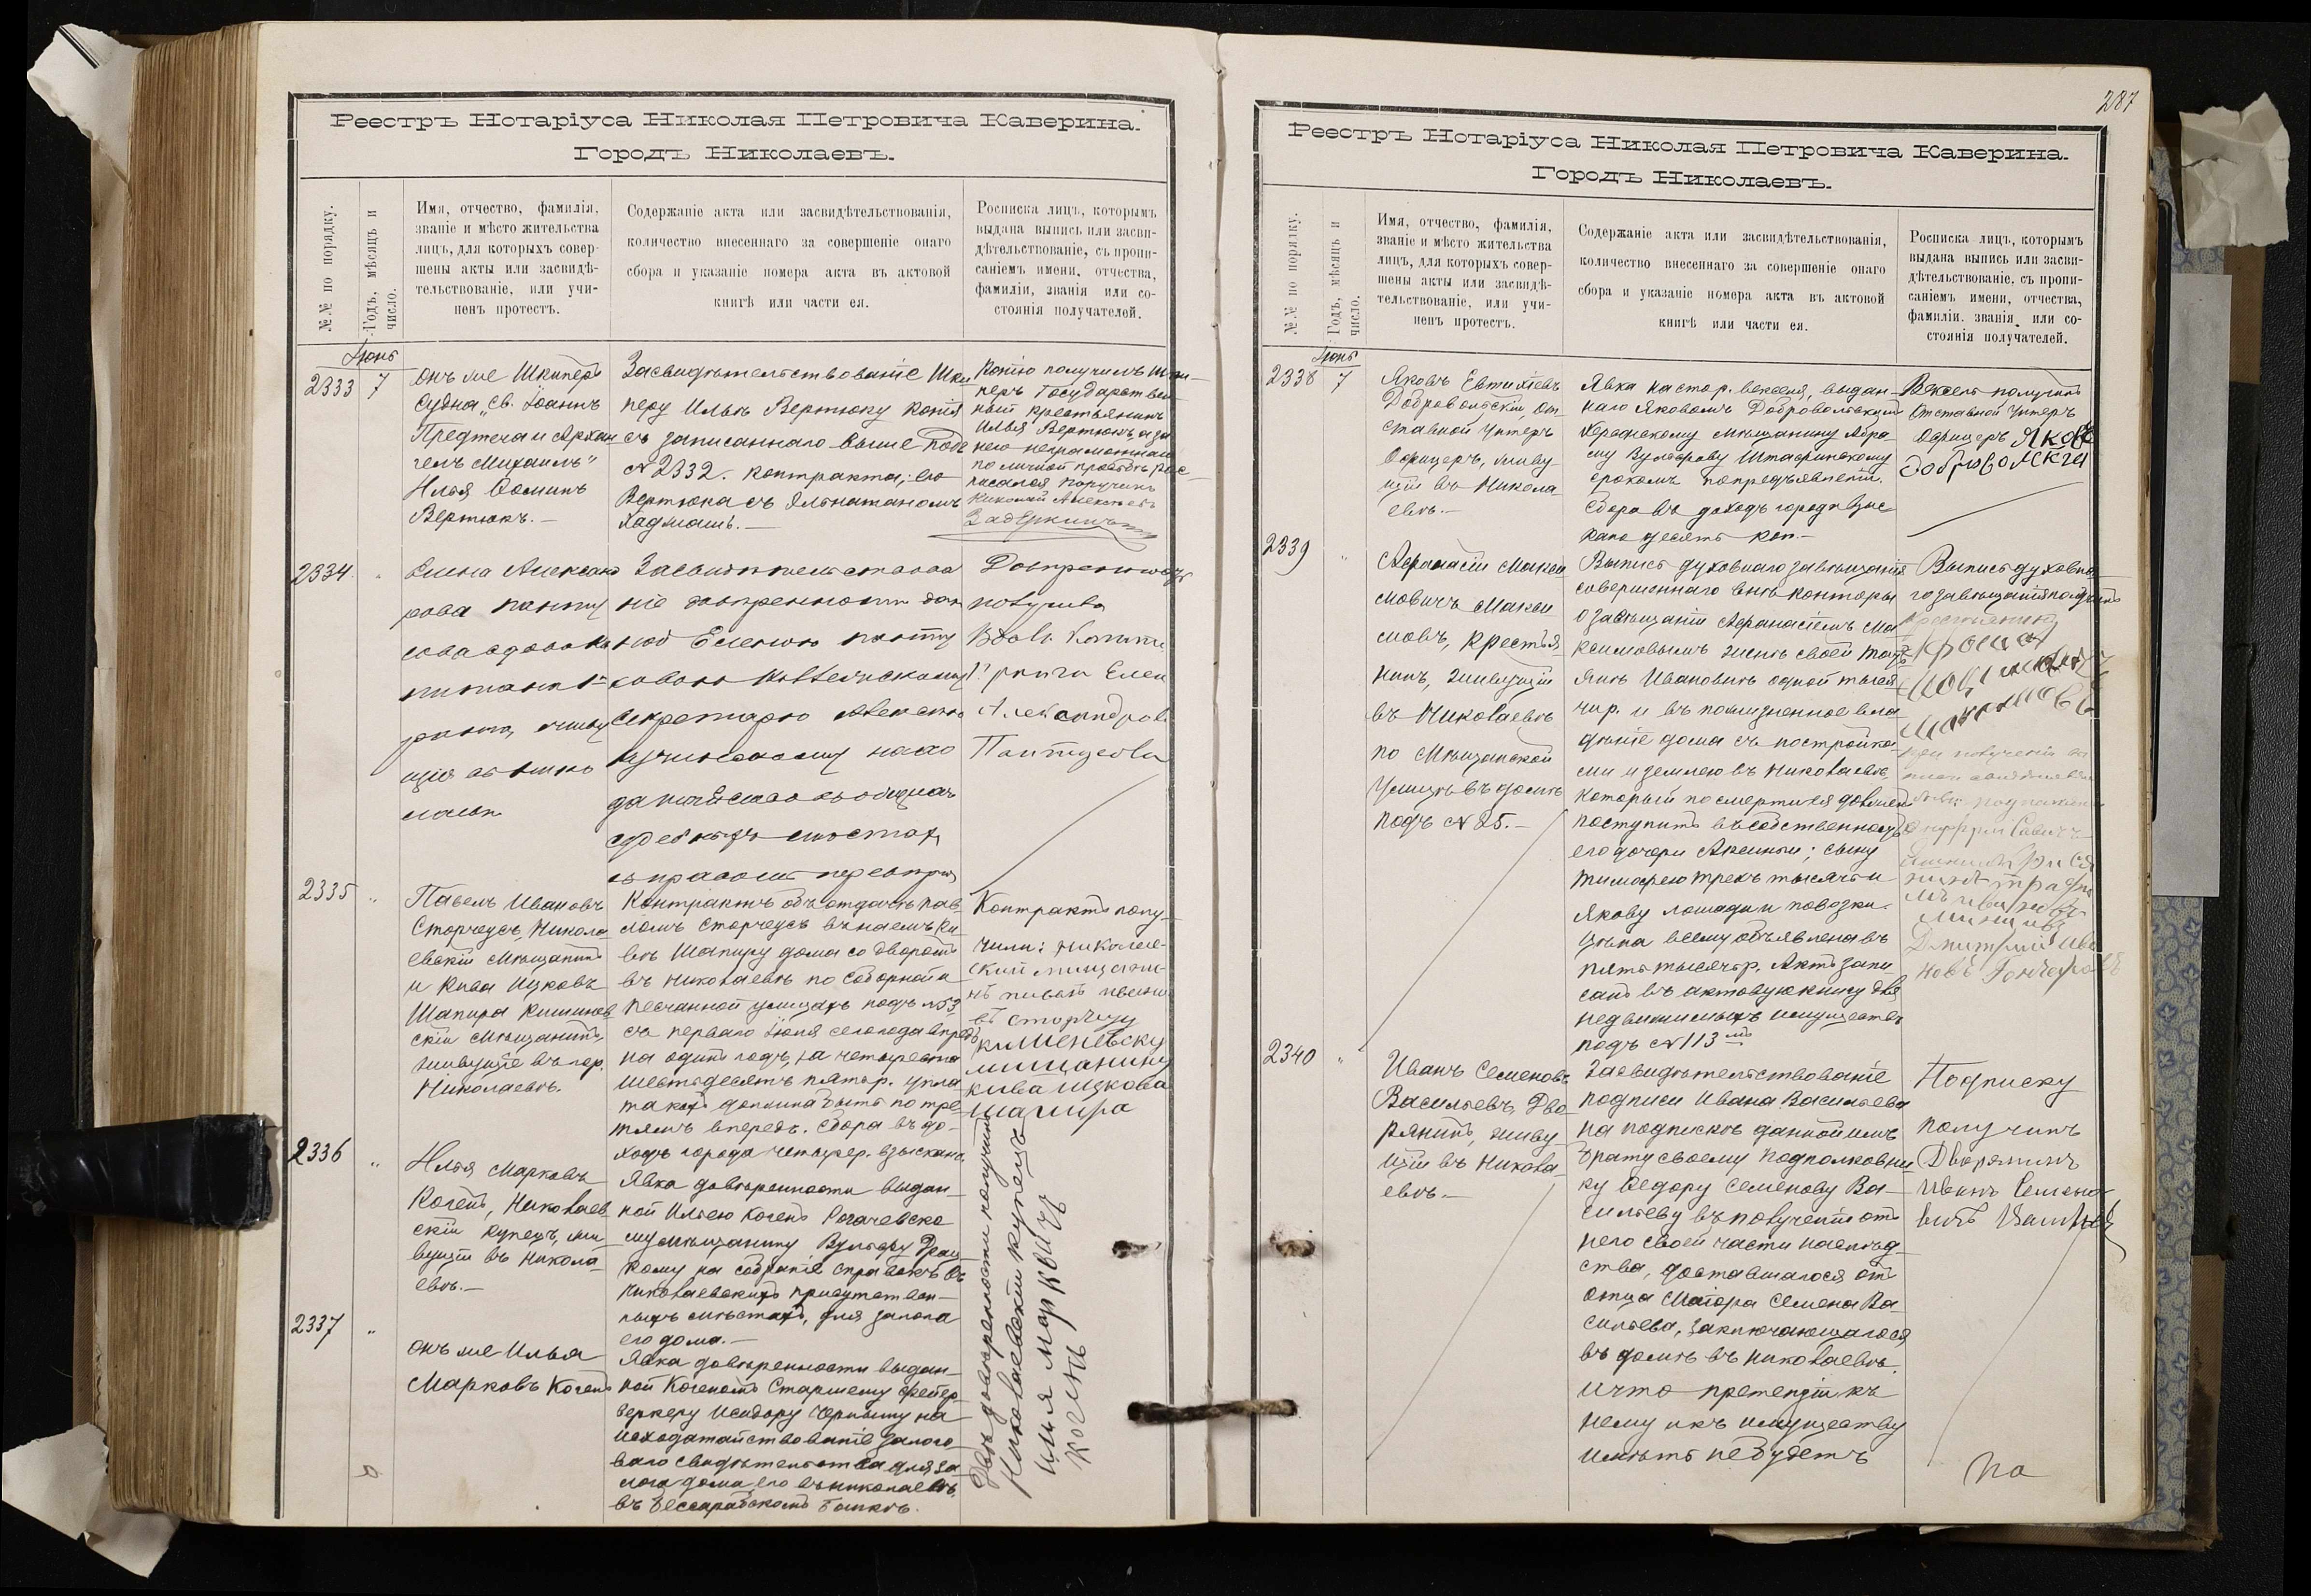 Реестръ Нотаріуса Николая Петровича Каверина.
Городъ Николаевъ.
№№ по порядку.
Годъ, мѣсяцъ и число.
Имя, отчество, фамилія,
званіе и мѣсто жительства
лицъ, для которыхъ совер-
шены акты или засвидѣ-
тельствованіе, или учи-
ненъ протестъ.
Содержаніе акта или засвидѣтельствованія,
количество внесеннаго за совершеніе онаго
сбора и указаніе номера акта въ актовой
книгѣ или части ея.
Росписка лицъ, которымъ
выдана выпись или засви-
дѣтельствованіе, съ пропи-
саніемъ имени, отчества,
фамиліи, званія или со-
стоянія получателей.
Іюнь
2333 7
Онъ же Шкиперъ
судна „Св. Іоаннъ
Предтеча и Архан
гелъ Михаилъ"
Илья Ѳоминъ
Вертюкъ.-
Засвидѣтельствованіе Шки
перу Ильѣ Вертюку копія
съ записаннаго выше подъ
№ 2332. контракта; его
Вертюка съ Эльнатаномъ
Хадмашъ.-
Копію получилъ Шки-
перъ Государствен-
ный крестьянинъ
Илья Вертюкъ, а за
него неграмотнаго
по личной просьбѣ рос-
писался Поручикъ
Николай Алексѣевъ
2334 "
Елена Александ
рова
Засвидѣтельствова
ніе довѣренности дан
ной Еленою
Секретарю
Довѣренность
получила
Вдова Капита
Елена
Александрова
2335 "
Павелъ Ивановъ
Сторчеусъ, Никола
евскій мѣщанинъ
и Кива Ицковъ
Шапира Кишинев
скій мѣщанинъ,
живущіе въ гор.
Николаевѣ.
Контрактъ объ отдачѣ Пав-
ломъ Сторчеусъ въ наемъ Ки-
вѣ Шапиру дома со дворомъ
въ Николаевѣ по Соборной и
Песчанной улицахъ подъ № 53
съ перваго Іюня сего года впредь
на одинъ годъ, за четыреста
шестьдесятъ пять р. упла
та коихъ должна быть по тре-
тямъ впередъ. Сбора въ до-
ходъ города четыре р. взыскано.
Контрактъ полу-
чили: Николае-
вскій мищани-
нъ
Кишеневску
мищанину
Кива Ицкова
Шапира
2336 "
Илья Марковъ
Когенъ, Николаев
скій купецъ, жи
вущій въ Никола
евѣ.-
Явка довѣренности выдан-
ной Ильею Когенъ Рогачевско
му мѣщанину Вульфу
кому на собраніе справокъ въ
Николаевскихъ присутствен-
ныхъ мѣстахъ, для залога
его дома.-
2337 "
Онъ же Илья
Марковъ Когенъ
Явка довѣренности выдан-
ной Когеномъ Старшему фейер-
веркеру Исидору Черному на
исходатайствованіе залого-
ваго свидѣтельства для за
лога дома его въ Николаевѣ,
въ Бессарабскомъ Банкѣ.
Двѣ довѣренности получилъ
Николаевскій купецъ
Илья Марковичъ
Когенъ
287
Реестръ Нотаріуса Николая Петровича Каверина.
Городъ Николаевъ.
№№ по порядку.
Годъ, мѣсяцъ и число.
Имя, отчество, фамилія,
званіе и мѣсто жительства
лицъ, для которыхъ совер-
шены акты или засвидѣ-
тельствованіе, или учи-
ненъ протестъ.
Содержаніе акта или засвидѣтельствованія,
количество внесеннаго за совершеніе онаго
сбора и указаніе номера акта въ актовой
книгѣ или части ея.
Росписка лицъ, которымъ
выдана выпись или засви-
дѣтельствованіе, съ пропи-
саніемъ имени, отчества,
фамиліи, званія или со-
стоянія получателей.
Іюнь
2338 7
Яковъ Евтихіевъ
Добровольскій, От
ставной Унтеръ
Офицеръ, живу
щій въ Никола
евѣ.-
Явка на сто р. векселя, выдан-
наго Яковомъ Добровольскимъ
Херсонскому мѣщанину Абра-
му Вульфову
срокомъ по предъявленіи.
Сбора въ доходъ города взыс-
кано десять коп.-
Вексель получилъ
Отставной Унтеръ
Офицеръ Яковъ
Добровольскій
2339 "
Афанасій Макси
мовичъ Макси
мовъ, Крестья
нинъ, живущій
въ Николаевѣ
по Мѣщанской
улицѣ въ домѣ
подъ № 25.-
Выпись духовнаго завѣщанія
совершеннаго внѣ конторы
о завѣщаніи Афанасіемъ Ма-
ксимовымъ женѣ своей Тать-
янѣ Ивановнѣ одной тыся
чи р. и въ пожизненное вла
дѣніе дома съ постройка-
ми и землею въ Николаевѣ,
который по смерти ея долженъ
поступить въ собственность
его дочери Аксиньи; сыну
Тимофею трехъ тысячъ и
Якову лошади и повозки.
Цѣна всему объявлена въ
пять тысячъ р. Актъ запи
санъ въ актовую книгу для
недвижимыхъ имуществъ
подъ № 113 мъ
Выпись духовна-
го завѣщанія получилъ
Крестьянинъ
Дмитрій Ива
новъ Гончаровъ
2340 "
Иванъ Семеновъ
Васильевъ, Дво
рянинъ, живу
щій въ Никола
евѣ.-
Засвидѣтельствованіе
подписи Ивана Васильева
на подпискѣ данной имъ
брату своему Подполковни
ку Ѳедору Семенову Ва-
сильеву въ полученіи отъ
него своей части наслѣд-
ства, доставшагося отъ
отца Маіора Семена Ва-
сильева, заключающагося
въ домѣ въ Николаевѣ.
и что претензіи къ
нему и къ имуществу
имѣть не будетъ
Подписку
получилъ
Дворянинъ
Иванъ Семено-
вичъ Васильевъ
По